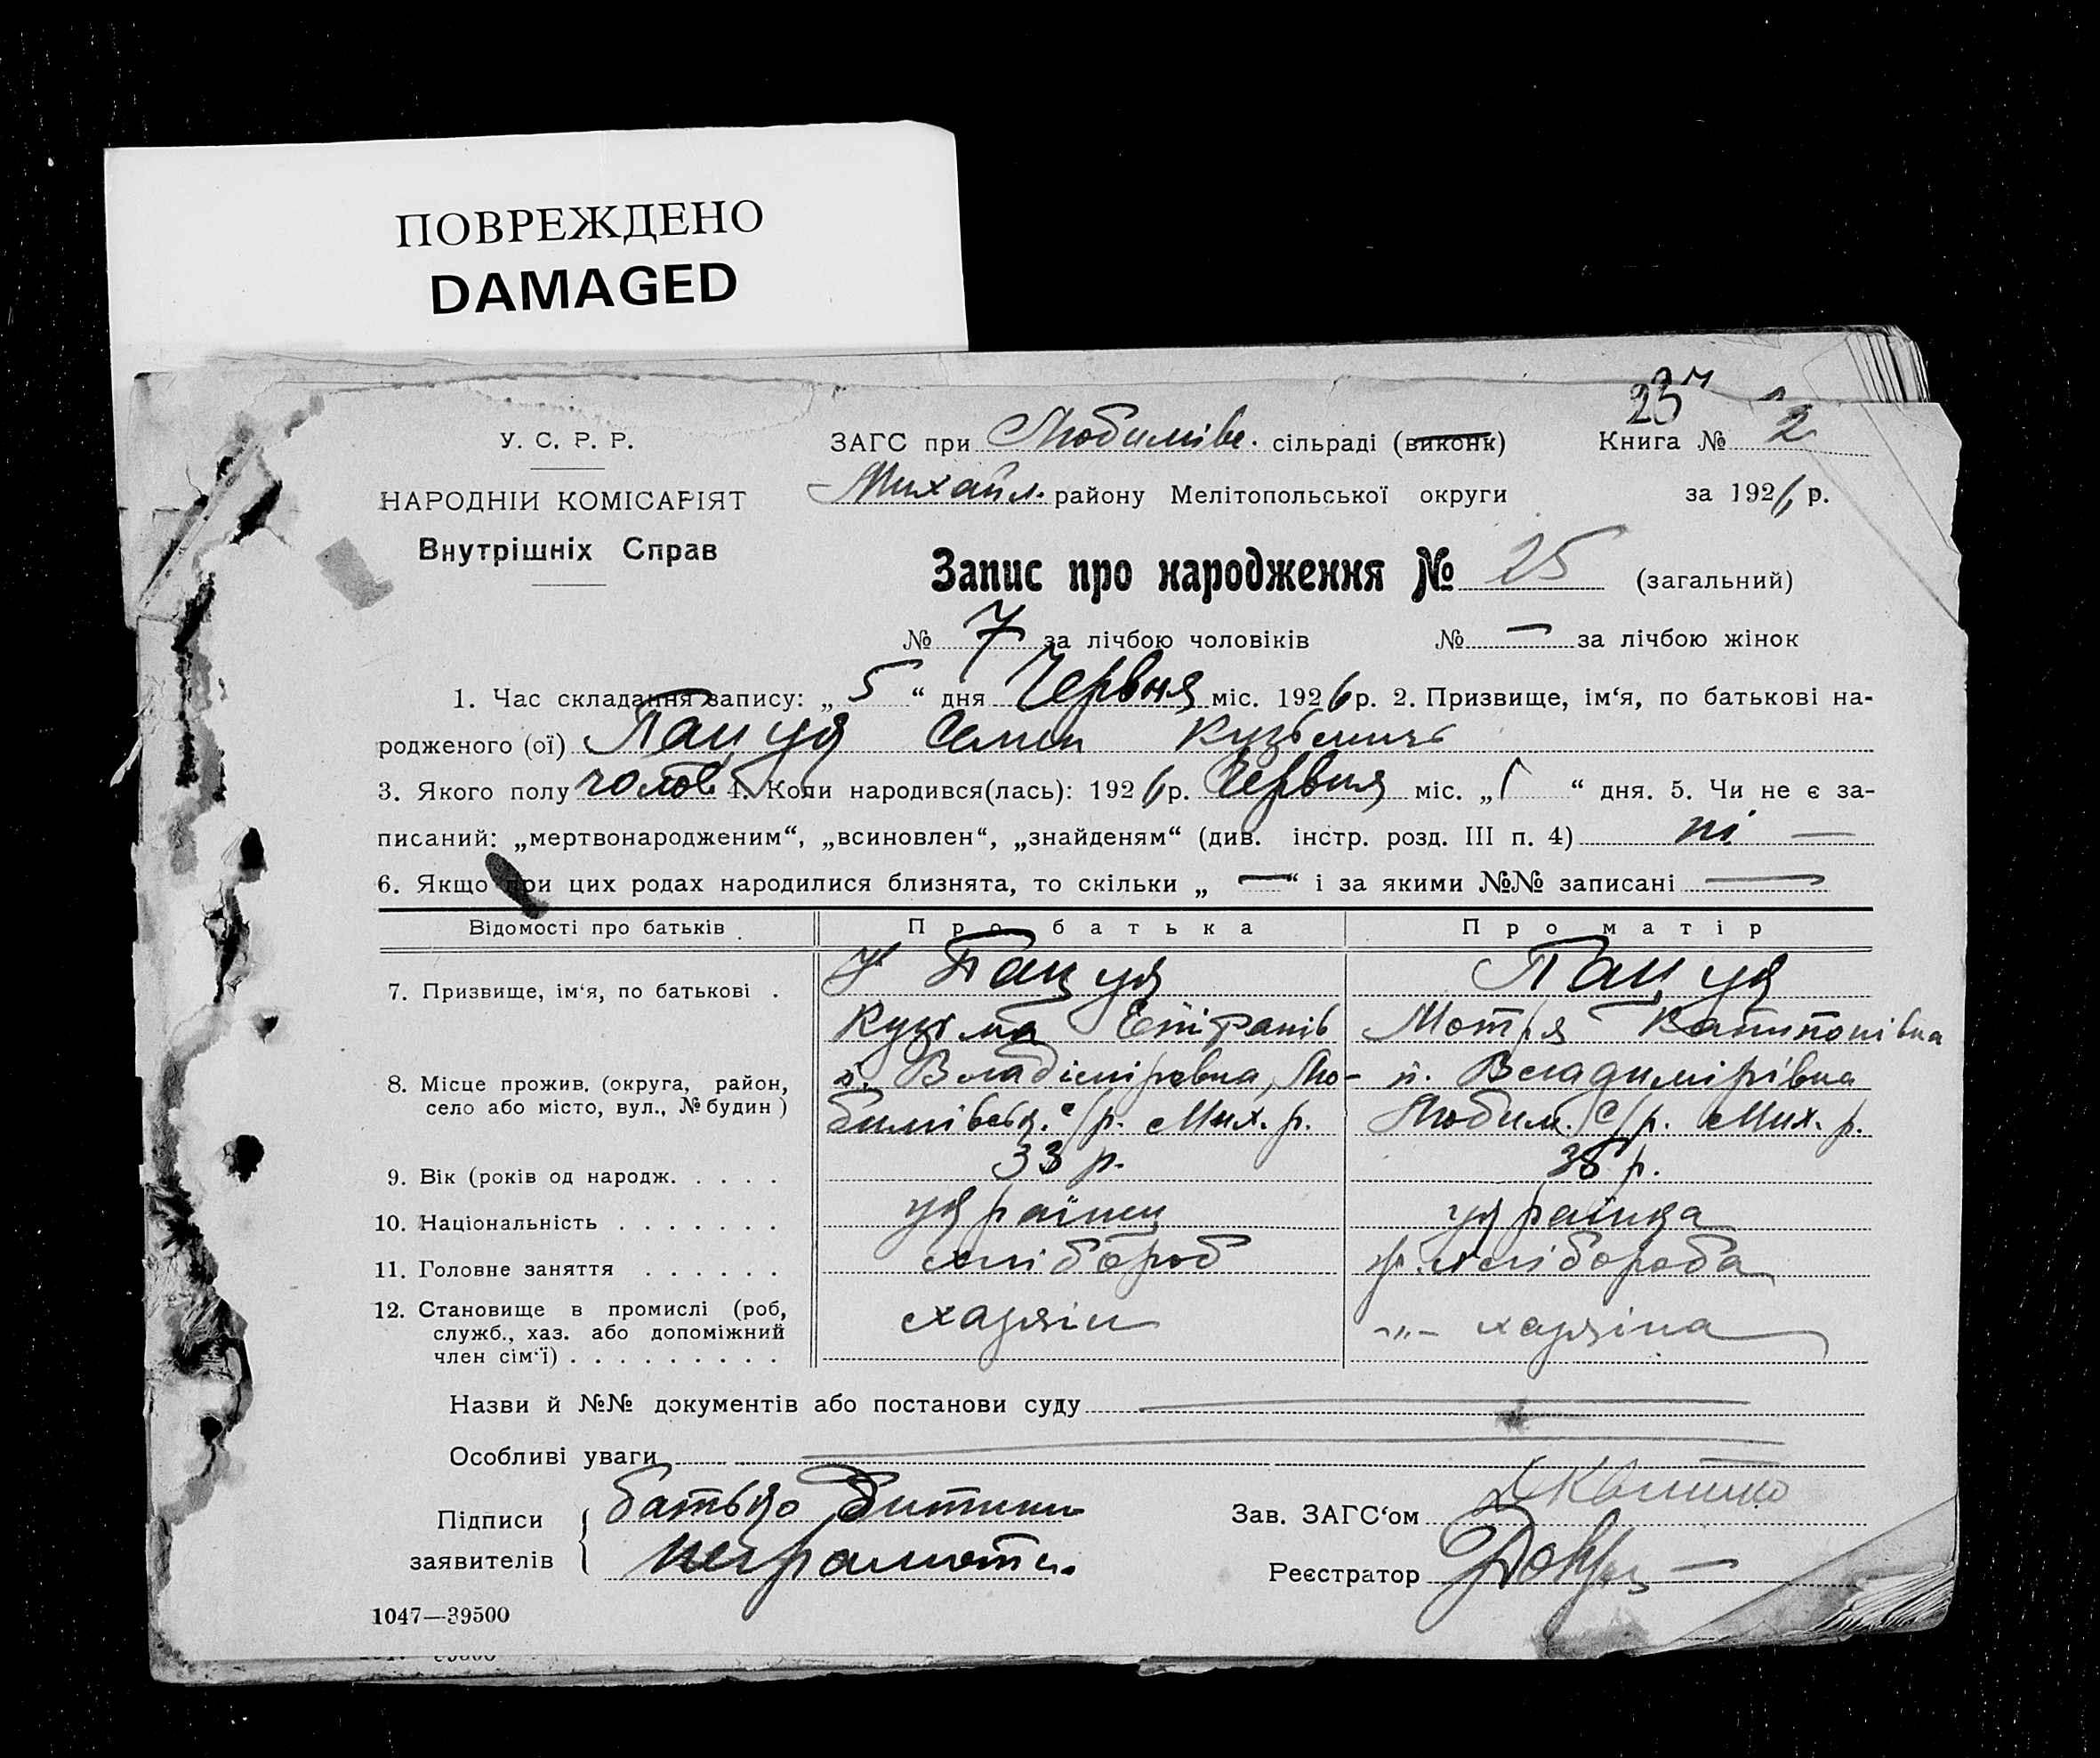 ПОВРЕЖДЕНО
DAMAGED
23
У. С. Р. Р.
ЗАГС при Любимівс. сільраді (виконк)
Книга № 2
НАРОДНІЙ КОМІСАРІЯТ
Михайл. району Мелітопольської округи
за 1926 р.
Внутрішніх Справ
Запис про народження № 25 (загальний)
№ 7 за лічбою чоловіків № — за лічбою жінок
1. Час складання запису: „ 5 “ дня Червня міс. 1926 р. 2. Призвище, ім‘я, по батькові на-
родженого (ої) Пацуя Семен Кузьмич
3. Якого полу чолов. 4. Коли народився(лась): 1926 р. Червня міс. „ 1 “ дня. 5. Чи не є за-
писаний: „мертвонародженим“, „всиновлен“, „знайденям“ (див. інстр. розд. III п. 4) ні —
6. Якщо при цих родах народилися близнята, то скільки „ — “ і за якими №№ записані —
Відомості про батьків
Про батька
Про матір
7. Призвище, ім‘я, по батькові .
Пацуя
Пацуя
Кузьма
Мотря
8. Місце прожив. (округа, район,
село або місто, вул., № будин )
п. Владімірівка, Лю-
п. Владимірівка
бимівськ. с/р. Мих. р.
Любим. с/р. Мих. р.
9. Вік (років од народж. . . . .
33 р.
р.
10. Національність . . . . . . .
українец
українка
11. Головне заняття . . . . . .
хлібороб
хлібороба
12. Становище в промислі (роб,
служб., хаз. або допоміжний
член сім‘ї) . . . . . . . . .
хазяїн
-„- хазяїна
Назви й №№ документів або постанови суду
Особливі уваги
Підписи
заявителів
батько дитини
неграмотн.
Зав. ЗАГС‘ом
Реєстратор
1047—39500